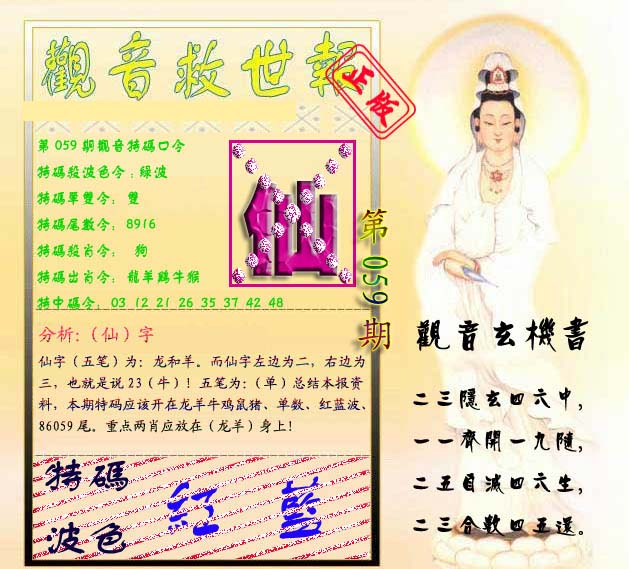 觀音救世報
正版
第059期觀音特碼口令
特碼殺波色令:綠波
特碼單雙令: 雙
特碼尾數令: 8916
特碼殺肖令: 狗
特碼出肖令: 龍羊鷄牛猴
特中碼令: 03 12 21 26 35 37 42 48
仙
第059期
分析:(仙)字
仙字(五笔)为:龙和羊。而仙字左边为二,右边为
三,也就是说23(牛)!五笔为:(单)总结本报资
料,本期特码应该开在龙羊牛鸡鼠猪、单数、红蓝波、
86059尾。重点两肖应放在(龙羊)身上!
特碼
波色
紅 藍
觀音玄機書
二三隱玄四六中,
一一齊開一九隨,
二五目減四六生,
二三合數四五還。